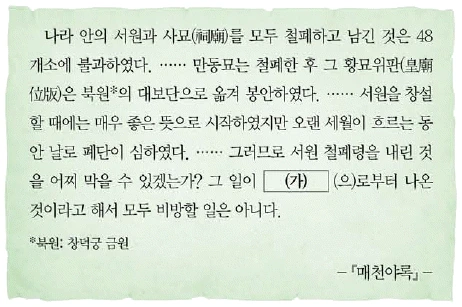 나라 안의 서원과 사묘(祠廟)를 모두 철폐하고 남긴 것은 48
개소에 불과하였다. …… 만동묘는 철폐한 후 그 황묘위판(皇廟
位版)은 북원*의 대보단으로 옮겨 봉안하였다. …… 서원을 창설
할 때에는 매우 좋은 뜻으로 시작하였지만 오랜 세월이 흐르는 동
안 날로 폐단이 심하였다. …… 그러므로 서원 철폐령을 내린 것
을 어찌 막을 수 있겠는가? 그 일이 (가) (으)로부터 나온
것이라고 해서 모두 비방할 일은 아니다.
*북원: 창덕궁 금원
-『매천야록』-